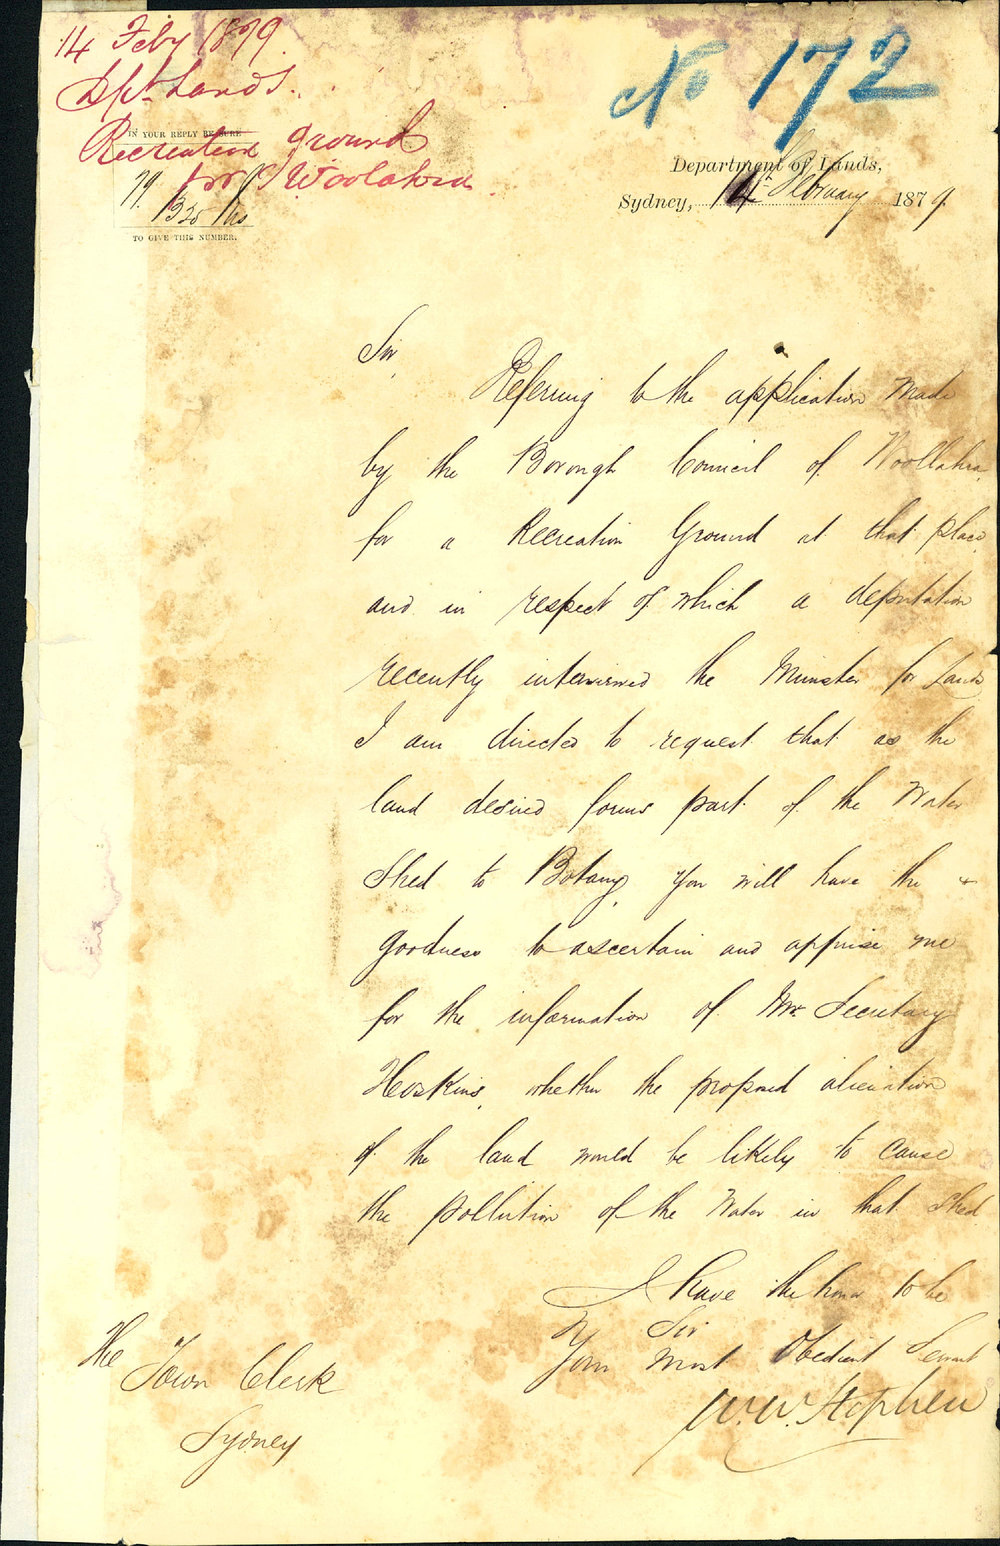 14 Feby 1879
Dpt Lands.
Recreation ground
for Woolahra
No 172
IN YOUR REPLY BE SURE
79.
1320 Ms
TO GIVE THIS NUMBER.
Department of Lands,
Sydney, 14th February 1879.
Sir,
Referring to the application made
by the Borough Council of Woollahra
for a Recreation Ground at that place,
and in respect of which a deputation
recently interviewed the Minister for Lands
I am directed to request that as the
land desired forms part of the Water
Shed to Botany, you will have the
goodness to ascertain and apprise me
for the information of Mr. Secretary
Hoskins, whether the proposed alienation
of the land would be likely to cause
the pollution of the Water in that Shed
I have the honor to be
Sir
Your most Obedient Servant
W.W. Stephen
The Town Clerk
Sydney